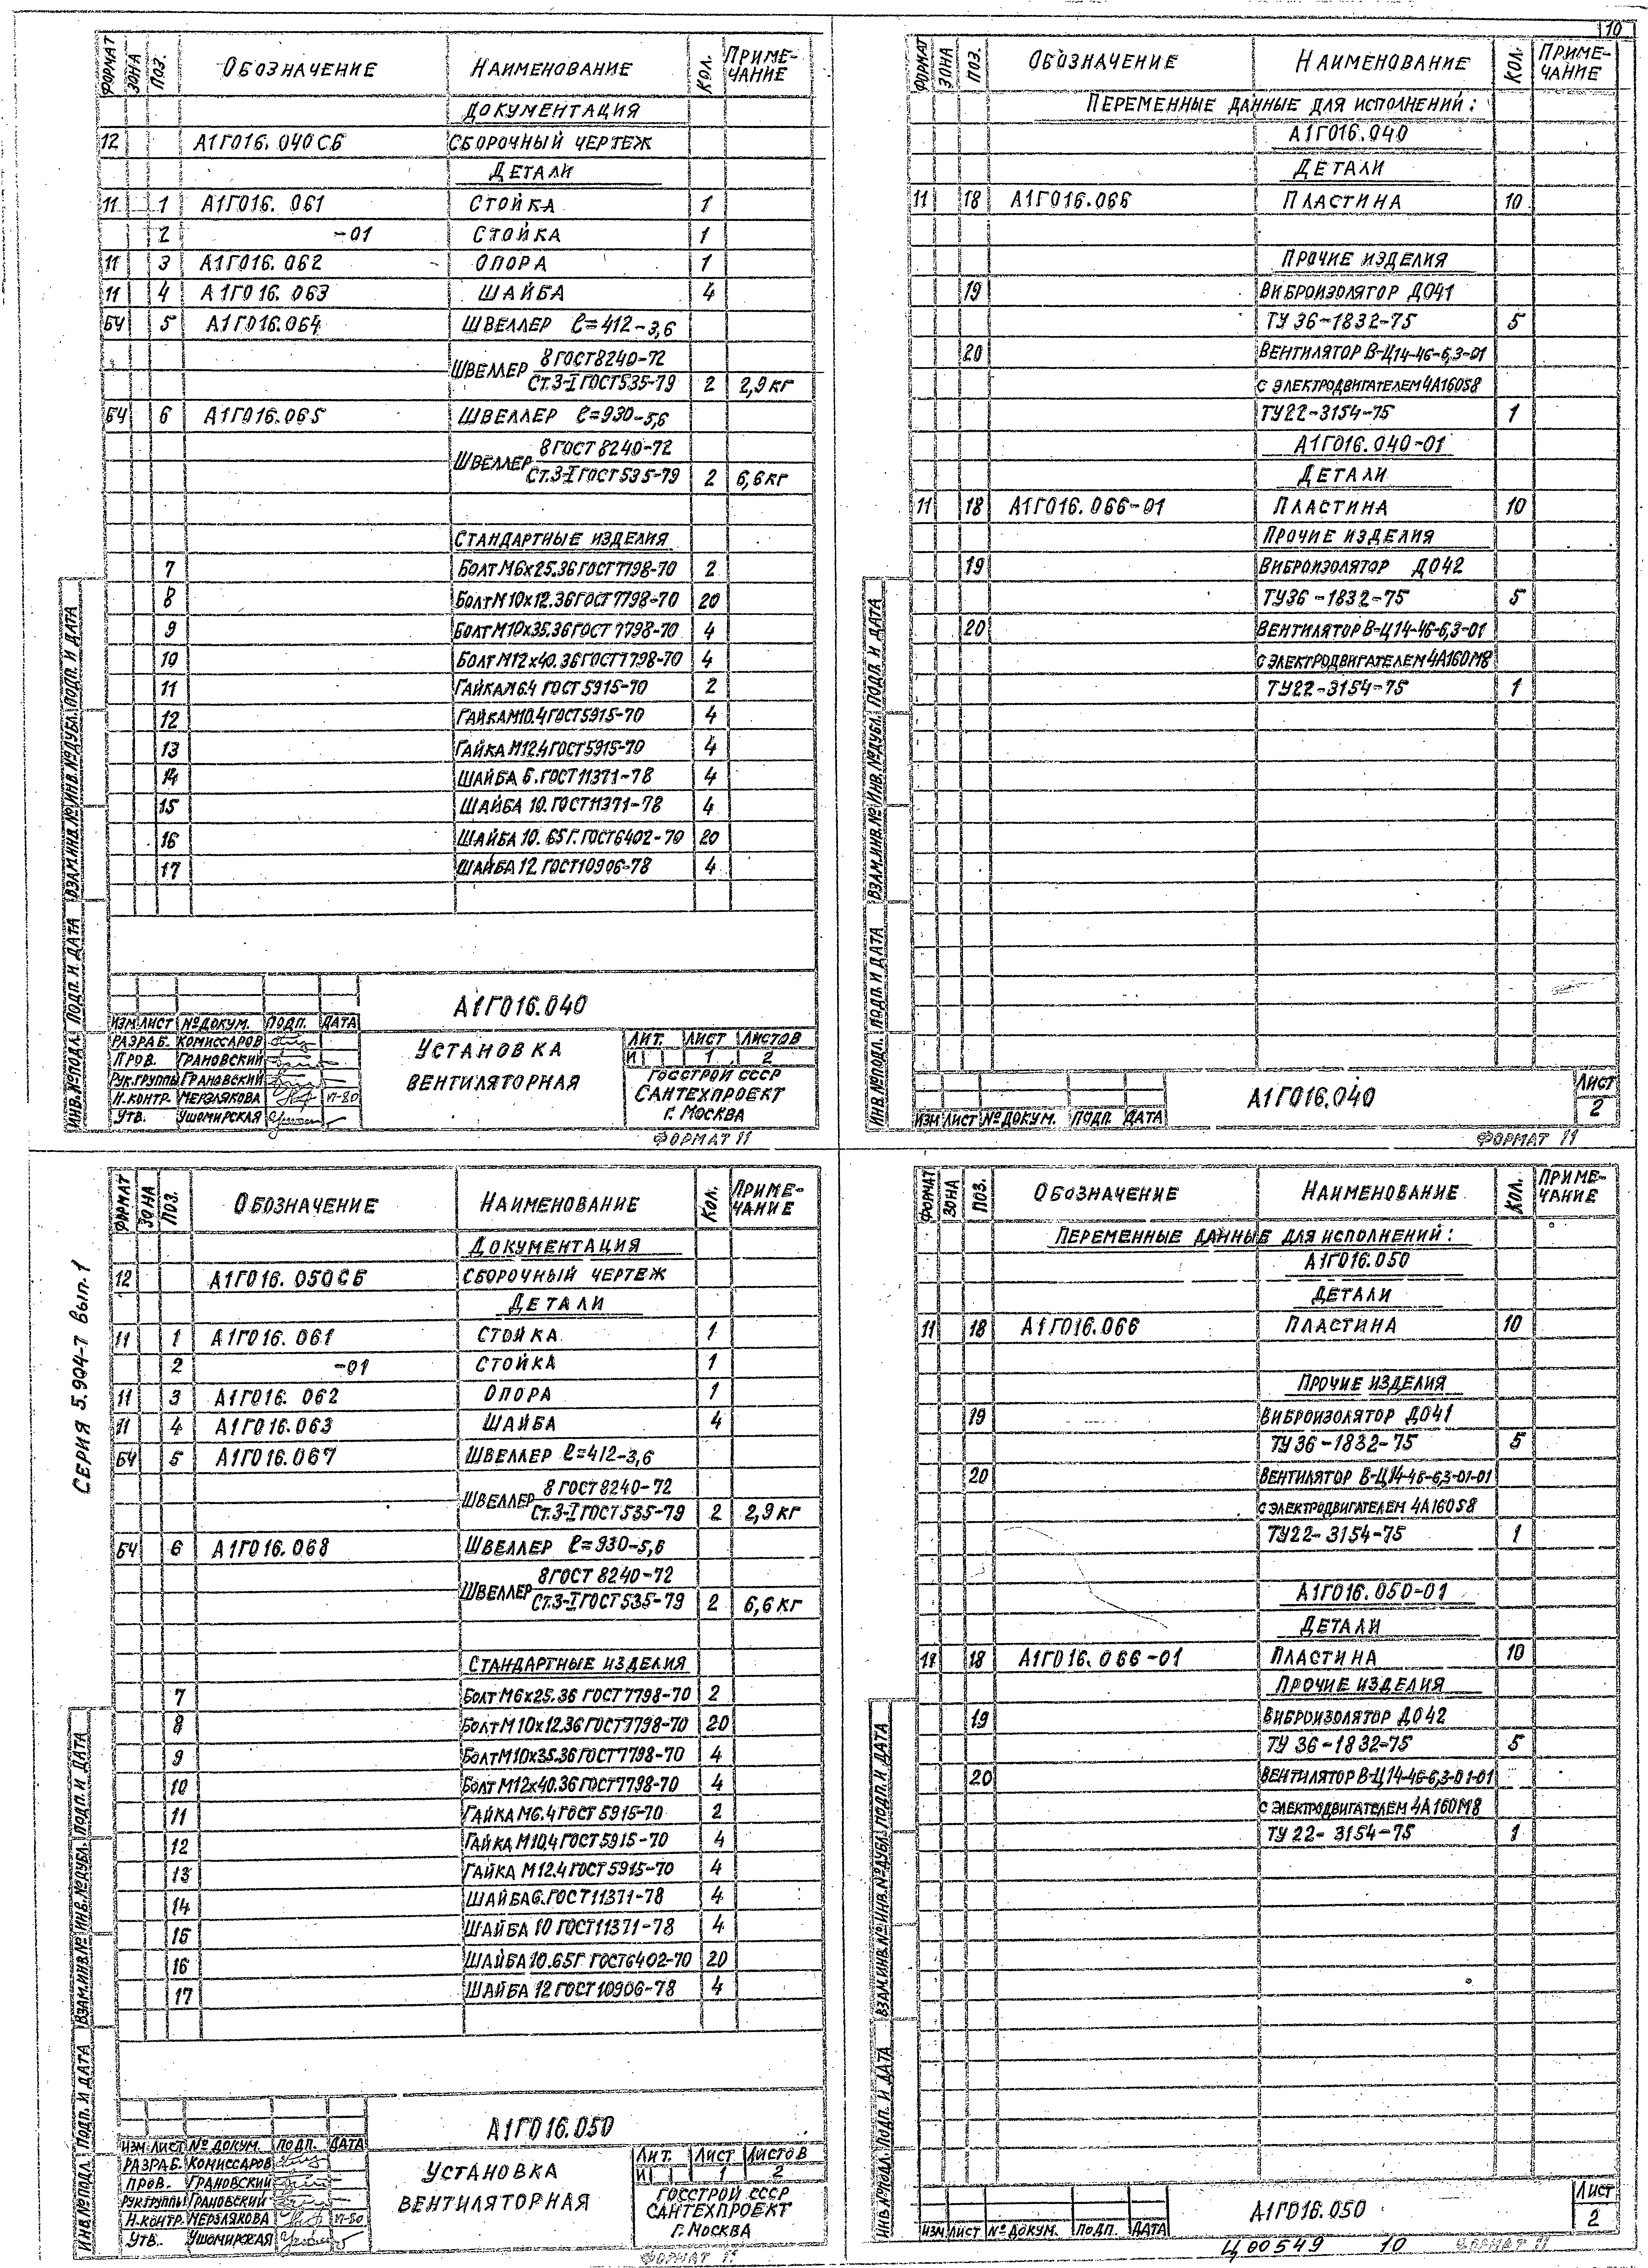 10
ФОРМАТ ЗОНА ПОЗ. ОБОЗНАЧЕНИЕ НАИМЕНОВАНИЕ КОЛ. ПРИМЕ-ЧАНИЕ
ДОКУМЕНТАЦИЯ
12 А1Г016.040СБ СБОРОЧНЫЙ ЧЕРТЕЖ
ДЕТАЛИ
11 1 А1Г016.061 СТОЙКА 1
2 -01 СТОЙКА 1
11 3 А1Г016.062 ОПОРА 1
11 4 А1Г016.063 ШАЙБА 4
БЧ 5 А1Г016.064 ШВЕЛЛЕР ℓ=412-3,6
ШВЕЛЛЕР 8 ГОСТ 8240-72
Ст.3-I ГОСТ 535-79 2 2,9 кг
БЧ 6 А1Г016.065 ШВЕЛЛЕР ℓ=930-5,6
ШВЕЛЛЕР 8 ГОСТ 8240-72
Ст.3-I ГОСТ 535-79 2 6,6 кг
СТАНДАРТНЫЕ ИЗДЕЛИЯ
7 БОЛТ М6х25.36 ГОСТ 7798-70 2
8 БОЛТ М10х12.36 ГОСТ 7798-70 20
9 БОЛТ М10х35.36 ГОСТ 7798-70 4
10 БОЛТ М12х40.36 ГОСТ 7798-70 4
11 ГАЙКА М6.4 ГОСТ 5915-70 2
12 ГАЙКА М10.4 ГОСТ 5915-70 4
13 ГАЙКА М12.4 ГОСТ 5915-70 4
14 ШАЙБА 6. ГОСТ 11371-78 4
15 ШАЙБА 10. ГОСТ 11371-78 4
16 ШАЙБА 10. 65Г. ГОСТ 6402-70 20
17 ШАЙБА 12 ГОСТ 10906-78 4
ИНВ.№ПОДЛ. ПОДП. И ДАТА ВЗАМ.ИНВ.№ ИНВ.№ДУБЛ. ПОДП. И ДАТА
А1Г016.040
ИЗМ ЛИСТ №ДОКУМ. ПОДП. ДАТА
РАЗРАБ. КОМИССАРОВ
ПРОВ. ГРАНОВСКИЙ
РУК.ГРУППЫ ГРАНОВСКИЙ
Н.КОНТР. МЕРЗЛЯКОВА VI-80
УТВ. УШОМИРСКАЯ
УСТАНОВКА
ВЕНТИЛЯТОРНАЯ
ЛИТ. ЛИСТ ЛИСТОВ
И 1 2
ГОССТРОЙ СССР
САНТЕХПРОЕКТ
Г. МОСКВА
ФОРМАТ 11
ФОРМАТ ЗОНА ПОЗ. ОБОЗНАЧЕНИЕ НАИМЕНОВАНИЕ КОЛ. ПРИМЕ-ЧАНИЕ
ПЕРЕМЕННЫЕ ДАННЫЕ ДЛЯ ИСПОЛНЕНИЙ:
А1Г016.040
ДЕТАЛИ
11 18 А1Г016.066 ПЛАСТИНА 10
ПРОЧИЕ ИЗДЕЛИЯ
19 ВИБРОИЗОЛЯТОР ДО41
ТУ 36-1832-75 5
20 ВЕНТИЛЯТОР В-Ц14-46-6,3-01
С ЭЛЕКТРОДВИГАТЕЛЕМ 4А160S8
ТУ22-3154-75 1
А1Г016.040-01
ДЕТАЛИ
11 18 А1Г016.066-01 ПЛАСТИНА 10
ПРОЧИЕ ИЗДЕЛИЯ
19 ВИБРОИЗОЛЯТОР ДО42
ТУ36-1832-75 5
20 ВЕНТИЛЯТОР В-Ц14-46-6,3-01
С ЭЛЕКТРОДВИГАТЕЛЕМ 4А160М8
ТУ22-3154-75 1
ИНВ.№ПОДЛ. ПОДП. И ДАТА ВЗАМ.ИНВ.№ ИНВ.№ДУБЛ. ПОДП. И ДАТА
ИЗМ ЛИСТ №ДОКУМ. ПОДП. ДАТА
А1Г016.040
ЛИСТ
2
ФОРМАТ 11
СЕРИЯ 5.904-7 Вып.1
ФОРМАТ ЗОНА ПОЗ. ОБОЗНАЧЕНИЕ НАИМЕНОВАНИЕ КОЛ. ПРИМЕ-ЧАНИЕ
ДОКУМЕНТАЦИЯ
12 А1Г016.050СБ СБОРОЧНЫЙ ЧЕРТЕЖ
ДЕТАЛИ
11 1 А1Г016.061 СТОЙКА 1
2 -01 СТОЙКА 1
11 3 А1Г016.062 ОПОРА 1
11 4 А1Г016.063 ШАЙБА 4
БЧ 5 А1Г016.067 ШВЕЛЛЕР ℓ=412-3,6
ШВЕЛЛЕР 8 ГОСТ 8240-72
Ст.3-I ГОСТ 535-79 2 2,9 кг
БЧ 6 А1Г016.068 ШВЕЛЛЕР ℓ=930-5,6
ШВЕЛЛЕР 8 ГОСТ 8240-72
Ст.3-I ГОСТ 535-79 2 6,6 кг
СТАНДАРТНЫЕ ИЗДЕЛИЯ
7 БОЛТ М6х25.36 ГОСТ 7798-70 2
8 БОЛТ М10х12.36 ГОСТ 7798-70 20
9 БОЛТ М10х35.36 ГОСТ 7798-70 4
10 БОЛТ М12х40.36 ГОСТ 7798-70 4
11 ГАЙКА М6.4 ГОСТ 5915-70 2
12 ГАЙКА М10.4 ГОСТ 5915-70 4
13 ГАЙКА М12.4 ГОСТ 5915-70 4
14 ШАЙБА 6. ГОСТ 11371-78 4
15 ШАЙБА 10 ГОСТ 11371-78 4
16 ШАЙБА 10.65Г ГОСТ 6402-70 20
17 ШАЙБА 12 ГОСТ 10906-78 4
ИНВ.№ПОДЛ. ПОДП. И ДАТА ВЗАМ.ИНВ.№ ИНВ.№ДУБЛ. ПОДП. И ДАТА
А1Г016.050
ИЗМ ЛИСТ № ДОКУМ. ПОДП. ДАТА
РАЗРАБ. КОМИССАРОВ
ПРОВ. ГРАНОВСКИЙ
РУК.ГРУППЫ ГРАНОВСКИЙ
Н.КОНТР. МЕРЗЛЯКОВА VI-80
УТВ. УШОМИРСКАЯ
УСТАНОВКА
ВЕНТИЛЯТОРНАЯ
ЛИТ. ЛИСТ ЛИСТОВ
И 1 2
ГОССТРОЙ СССР
САНТЕХПРОЕКТ
Г. МОСКВА
ФОРМАТ 11
ФОРМАТ ЗОНА ПОЗ. ОБОЗНАЧЕНИЕ НАИМЕНОВАНИЕ КОЛ. ПРИМЕ-ЧАНИЕ
ПЕРЕМЕННЫЕ ДАННЫЕ ДЛЯ ИСПОЛНЕНИЙ:
А1Г016.050
ДЕТАЛИ
11 18 А1Г016.066 ПЛАСТИНА 10
ПРОЧИЕ ИЗДЕЛИЯ
19 ВИБРОИЗОЛЯТОР ДО41
ТУ 36-1832-75 5
20 ВЕНТИЛЯТОР В-Ц14-46-6,3-01-01
С ЭЛЕКТРОДВИГАТЕЛЕМ 4А160S8
ТУ22-3154-75 1
А1Г016.050-01
ДЕТАЛИ
11 18 А1Г016.066-01 ПЛАСТИНА 10
ПРОЧИЕ ИЗДЕЛИЯ
19 ВИБРОИЗОЛЯТОР ДО42
ТУ 36-1832-75 5
20 ВЕНТИЛЯТОР В-Ц14-46-6,3-01-01
С ЭЛЕКТРОДВИГАТЕЛЕМ 4А160М8
ТУ 22-3154-75 1
ИНВ.№ПОДЛ. ПОДП. И ДАТА ВЗАМ.ИНВ.№ ИНВ.№ДУБЛ. ПОДП. И ДАТА
ИЗМ ЛИСТ №ДОКУМ. ПОДП. ДАТА
А1Г016.050
ЛИСТ
2
Ц00549 10 ФОРМАТ 11